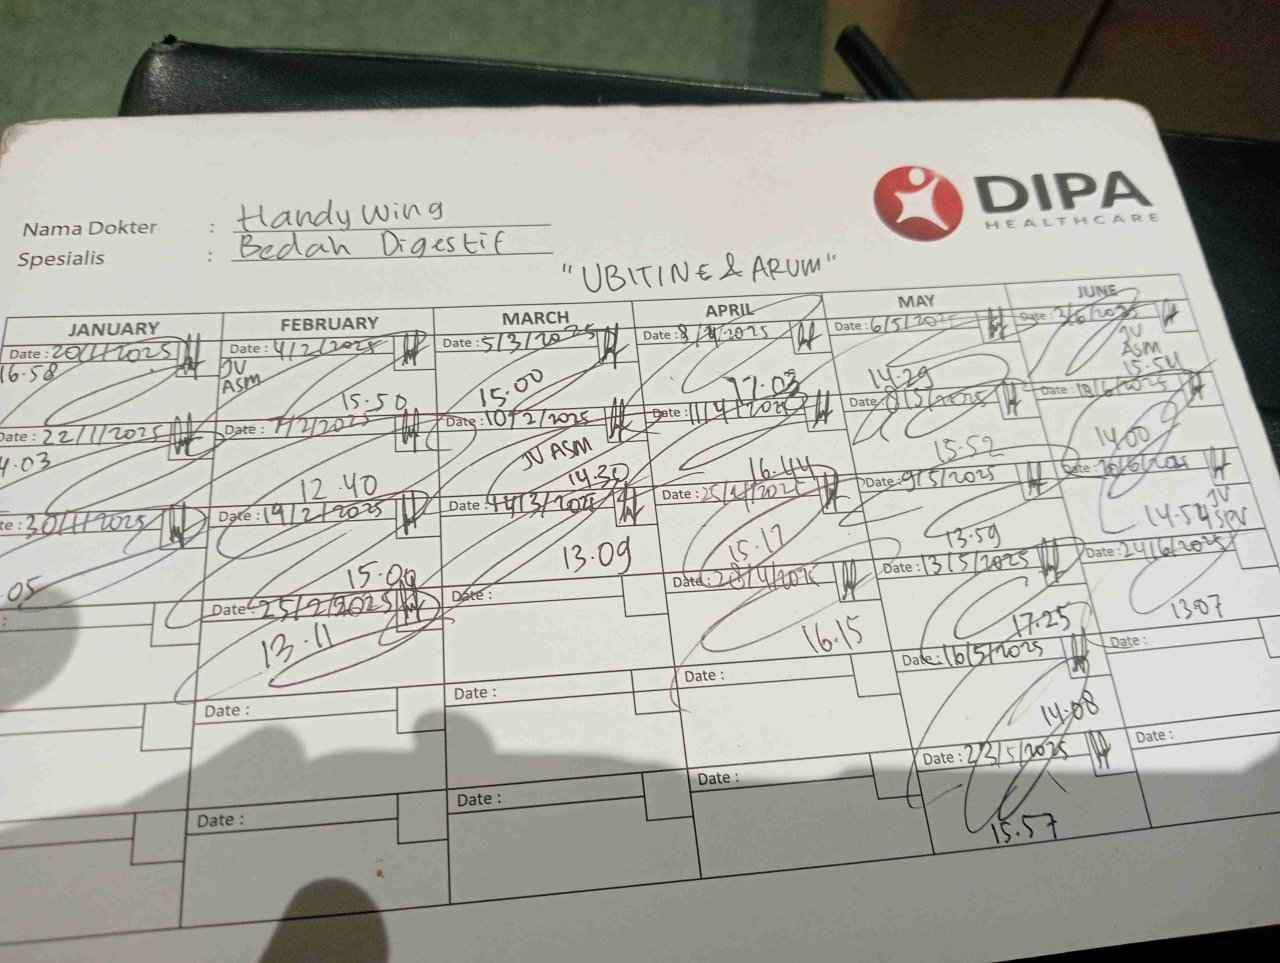 DIPA
HEALTHCARE
Nama Dokter : Handy Wing
Spesialis : Bedah Digestif
"UBITINE & ARUM"
JANUARY
Date : 20/1/2025
16.58
Date : 22/1/2025
4.03
te : 30/1/2025
.05
FEBRUARY
Date : 4/2/2025
JV
ASM
15.50
Date : 7/2/2025
12.40
Date : 19/2/2025
15.00
Date : 25/2/2025
13.11
Date :
Date :
MARCH
Date : 5/3/2025
15.00
Date : 10/2/2025
JV ASM
14.30
Date : 14/3/2025
13.09
Date :
Date :
Date :
APRIL
Date : 8/4/2025
17.03
Date : 11/4/2025
16.44
Date : 25/4/2025
15.17
Date : 28/4/2025
16.15
Date :
Date :
MAY
Date : 6/5/2025
14.29
Date : 8/5/2025
15.52
Date : 9/5/2025
13.59
Date : 13/5/2025
17.25
Date : 16/5/2025
14.08
Date : 23/5/2025
15.57
JUNE
Date : 2/6/2025
JV
ASM
15.54
Date : /6/2025
14.00
Date : /6/2025
JV
14.54 SPV
Date : 24/6/2025
13.07
Date :
Date :